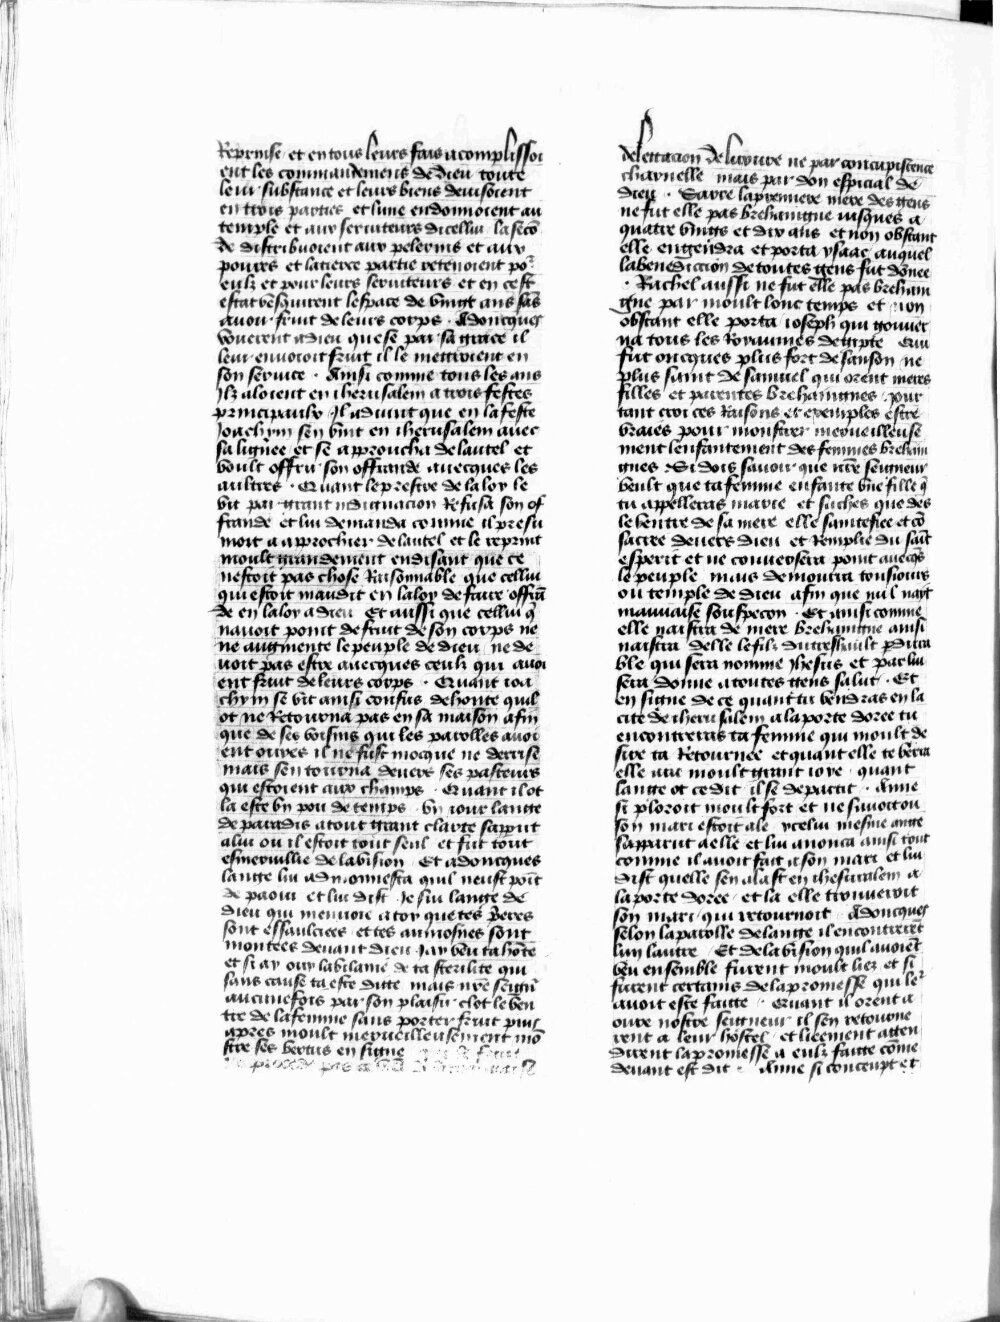 Reprinse et en tous leurs fais acomplissoi
ent les commandemens de dieu toute
leur substance et leurs biens devisoient
en trois parties et lune en donnoient au
temple et aux serviteurs dicellui la secō
de distribuoient aux pelerins et aux
povres et la tierce partie retenoient po᷑
eulx et pour leurs serviteurs et en cest
estat vesquirent lespace de vingt ans sās
avoir fruit de leurs corps . Adoncques
vouerent a dieu que se par sa grace il
leur envoioit fruit il le mettroient en
son service . Ainsi comme tous les ans
ilz aloient en iherusalem a trois festes
principaulx Il advint que en la feste
Joachym sen vint en iherusalem avec
sa lignee et se approucha de lautel et
voult offrir son offrande avecques les
aultres . Quant le prestre de la loy le
vit par grant indignacion Refusa son of
frande et lui demanda comme il presu
moit a approchier de lautel et le reprint
moult grandement en disant que ce
nestoit pas chose Raisonnable que cellui
qui estoit maudit en la loy de faire offrā
de en la loy a dieu Et aussi que cellui q̄
navoit point de fruit de son corps ne
ne augmente le peuple de dieu ne de
voit pas estre avecques ceulx qui avoi
ent fruit de leurs corps . Quant ioa
chym se vit ainsi confus de honte quil
ot ne Retourna pas en sa maison afin
que de ses voisins qui les parolles avoi
ent ouyes il ne fust mocque ne derrise
mais sen tourna devers ses pasteurs
qui estoient aux champs . Quant il ot
la este vn pou de temps . vn iour lange
de paradis a tout grant clarte sapparut
a lui ou il estoit tout seul et fut tout
esmerveillie de la vision . Et adoncques
lange lui admonnesta quil neust poīt
de paour et lui dist . Je sui lange de
dieu qui menvoie a toy que tes p̄eres
sont essaulcees et tes aumosnes sont
montees devant dieu Jay veu ta hōte
et si ay ouy la vilanie de ta sterilite qui
sans cause ta este ditte mais nr̄e seign᷑
aucunefois par son plaisir clot le ven
tre de la femme sans porter fruit puis
apres moult merveilleusement mō
stre ses vertus en signe
delettacion de luxure ne par concupiscence
charnelle mais par don especial de
dieu . Sarre la premiere mere des gens
ne fut elle pas brehaingne iusques a
quatre vingts et dix ans et non obstant
elle engendra et porta ysaac auquel
la benediccion de toutes gens fut dōnee
. Rachel aussi ne fut elle pas breham
gne par moult lonc temps et non
obstant elle porta ioseph qui gouver
na tous les Royaumes degipte Qui
fut oncques plus fort de sanson ne
plus saint de samuel qui orent meres
filles et parentes brehaingnes . pour
tant croi ces Raisons et exemples estre
vraies pour monstrer merveilleuse
ment lenfantement des femmes breham
gnes . Si dois savoir que nr̄e seigneur
veult que ta femme enfante vne fille q̄
tu appelleras marie et saches que des
le ventre de sa mere elle saintefiee et cō
sacree devers dieu et Remplie du saīt
esperit et ne conversera point avecq̄s
le peuple mais demoura tousiours
ou temple de dieu afin que nul nayt
mauvaise souspecon . Et ainsi comme
elle naistra de mere brehaingne ainsi
naistra delle le filz du treshault p̄dura
ble qui sera nomme Jhesus et par lui
sera donne a toutes gens salut . Et
en signe de ce quant tu vendras en la
cite de iherusalem a la porte doree tu
encontreras ta femme qui moult de
sire ta Retournee et quant elle te verra
elle aura moult grant ioye . quant
lange ot ce dit il se departit . Anne
si ploroit moult fort et ne savoit ou
son mari estoit ale ycelui mesme ange
sapparut a elle et lui anonca ainsi tout
comme il avoit fait a son mari et lui
dist quelle sen alast en iherusalem a
la porte doree et la elle trouveroit
son mari qui retournoit . Adoncques
selon la parolle de lange il encontrerēt
lun lautre . Et de la vision quil avoiēt
veu ensemble furent moult liez et si
furent certains de la promesse qui le᷑
avoit este faitte . Quant il orent a
oure nostre seigneur il sen retourne
rent a leur hostel et lieement atten
dirent la promesse a eulz faitte cōme
devant est dit . Anne si conceupt et